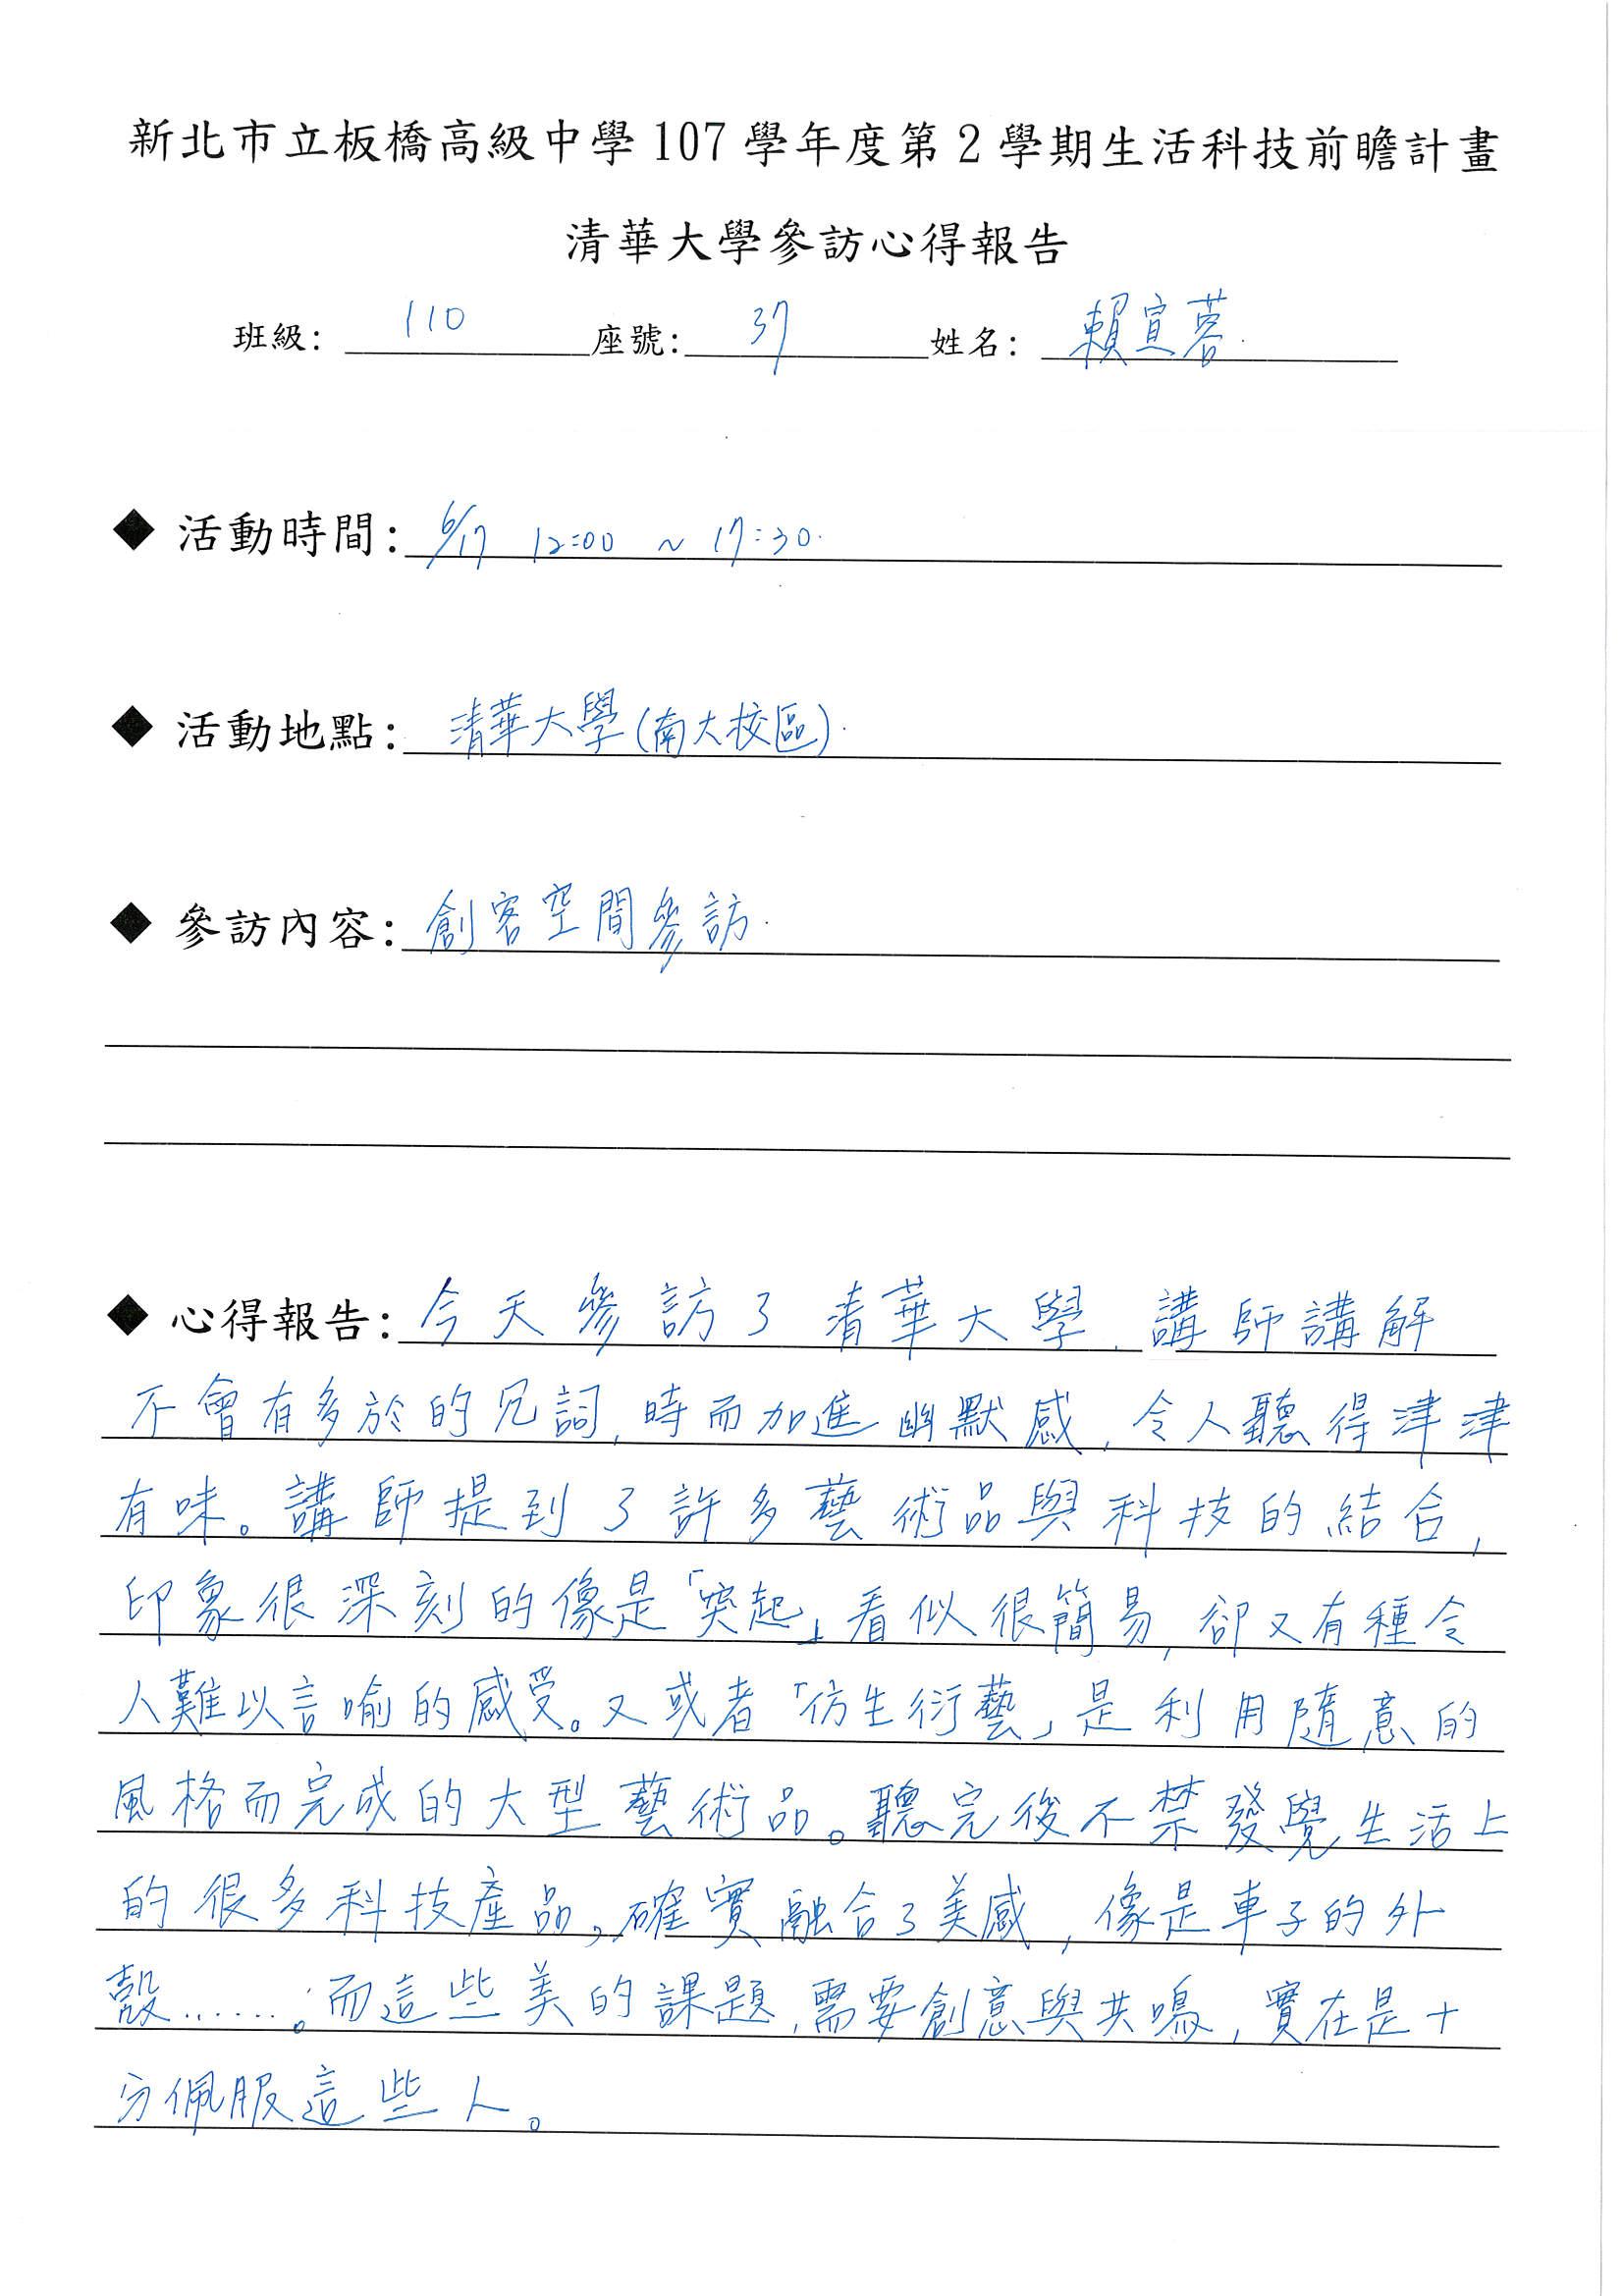 新北市立板橋高級中學107學年度第2學期生活科技前瞻計畫
清華大學參訪心得報告
班級: 110 座號: 37 姓名: 賴宣蓉
◆ 活動時間: 6/17 12:00 ~ 17:30
◆ 活動地點: 清華大學(南大校區)
◆ 參訪內容: 創客空間參訪
◆ 心得報告: 今天參訪了清華大學,講師講解
不會有多於的冗詞,時而加進幽默感,令人聽得津津
有味。講師提到了許多藝術品與科技的結合,
印象很深刻的像是「突起」看似很簡易,卻又有種令
人難以言喻的感受。又或者「仿生衍藝」是利用隨意的
風格而完成的大型藝術品。聽完後不禁發覺生活上
的很多科技產品,確實融合了美感,像是車子的外
殼......。而這些美的課題,需要創意與共鳴,實在是十
分佩服這些人。